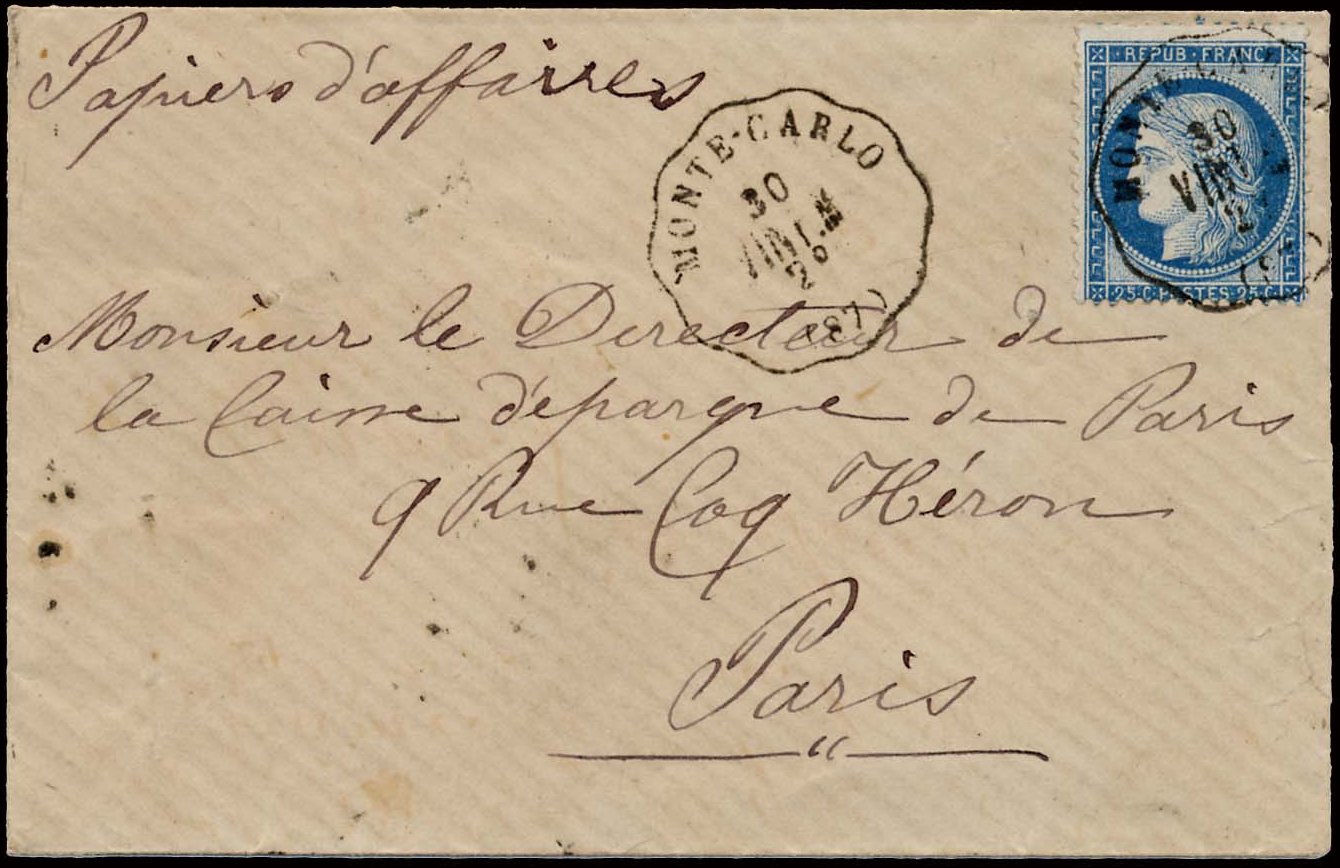 Papiers d'affaires
REPUB·FRANC
MONTE-CARLO
30
(87)
25 C POSTES 25 C
MONTE-CARLO
30
Monsieur le Directeur de
la Caisse d'épargne de Paris
9 Rue Coq Héron
Paris